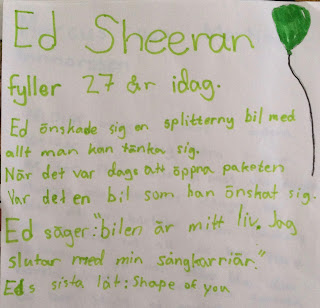 Ed Sheeran
fyller 27 år idag.
Ed önskade sig en splitterny bil med
allt man kan tänka sig.
När det var dags att öppna paketen
Var det en bil som han önskat sig.
Ed säger:"bilen är mitt liv. Jag
slutar med min sångkarriär."
Eds sista låt: Shape of you